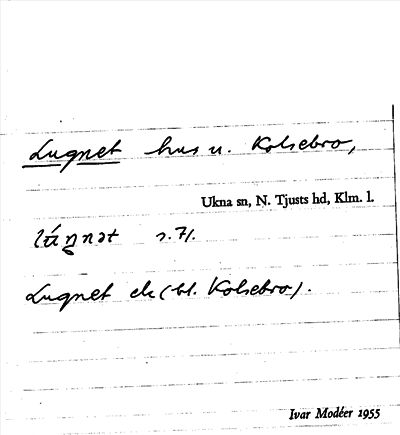 Lugnet hus u. Kolsebro,
Ukna sn, N. Tjusts hd, Klm. l.
s. 71.
Lugnet ek (bl. Kolsebro).
Ivar Modéer 1955